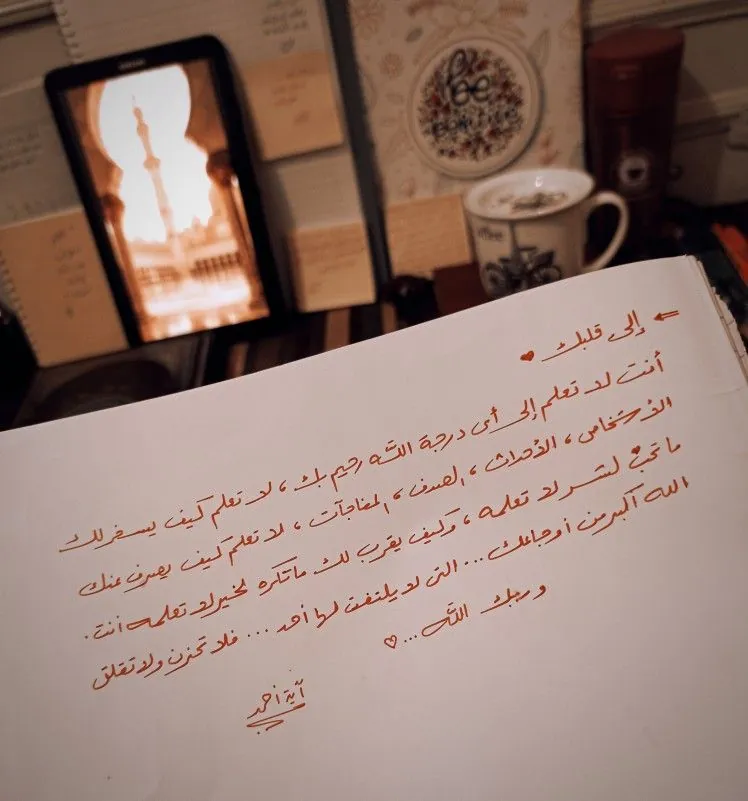 be
← إلى قلبك ♥
أنت لا تعلم إلى أي درجة الله رحيم بك ، لا تعلم كيف يسخر لك
الأشخاص ، الأحداث ، الصدف ، المفاجآت ، لا تعلم كيف يصرف عنك
ما تحب لشر لا تعلمه ، وكيف يقرب لك ما تكره لخير لا تعلمه أنت .
الله أكبر من أوجاعك ... التي لا يلتفت لها أحد ... فلا تحزن ولا تقلق
وربك الله ... ♡
آية أحمد